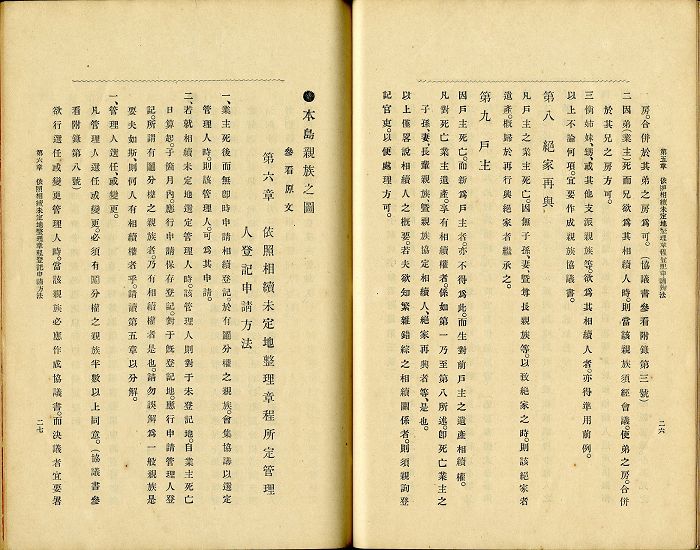 第五章 依照相續未定地整理章程登記申請辨法
二六
房。合併於其弟之房爲可。(協議書參看附錄第三號)
二因弟(業主)死而兄欲爲其相續人時。則當該親族須經會議。使弟之房。合併
於其兄之房方可。
三倘姊妹、甥、或其他支派親族等。欲爲其相續人者。亦得準用前例。
以上不論何項。宜要作成親族協議書。
第八 絕家再興
凡戶主之業主死亡。因無子孫、妻、暨尊長親族等。以致絕家之時。則該絕家者
遺產。概歸於再行興絕家者繼承之。
第九 戶主
因戶主死亡。而新爲戶主者。亦不得爲此。而生對前戶主之遺產相續權。
凡對死亡業主遺產。享有相續權者。係如第一乃至第八所述。卽死亡業主之
子孫、妻、長輩親族暨親族協定相續人、絕家再興者等、是也。
以上僅畧說相續人之槪要。若夫欲知繁雜錯綜之相續關係者。則須親詢登
記官吏。以便處理方可。
●本島親族之圖
參看原文
第六章 依照相續未定地整理章程所定管理
人登記申請方法
一、業主死後而無卽時申請相續登記。於有鬮分權之親族。會集協議以選定
管理人時。則該管理人。可爲其申請。
二、若就相續未定地選定管理人時。該管理人則對于未登記地。自業主死亡
日算起。于六個月內。應行申請保存登記。對于旣登記地。應行申請管理人登
記。所謂有鬮分權之親族者。乃有相續權者是也。請勿誤解爲一般親族是
要。夫如斯。則何人有相續權者乎。請讀第五章以分解。
一、管理人選任或變更。
凡管理人選任或變更。必須有鬮分權之親族半數以上同意。(協議書參
看附錄第八號)
欲行選任或變更管理人時。當該親族必應作成協議書。而決議者宜要署
第六章 依照相續未定地整理章程登記申請方法
二七